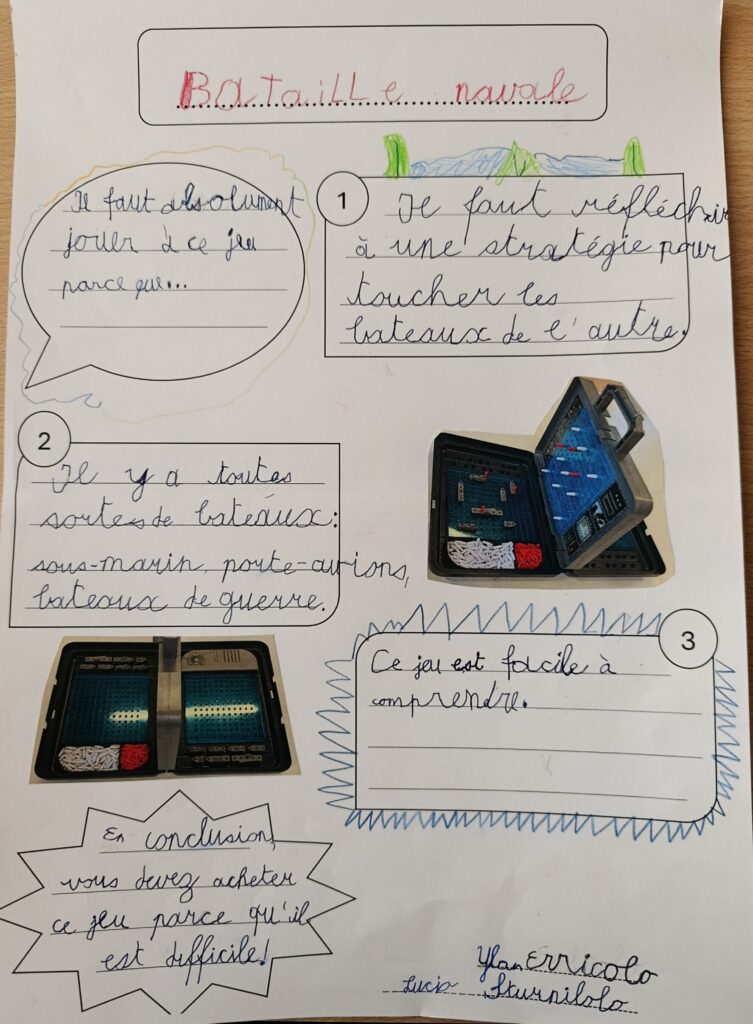 Bataille navale
Il faut absolument
jouer à ce jeu
parce que...
1
Il faut réfléchir
à une stratégie pour
toucher les
bateaux de l'autre.
2
Il y a toutes
sortes de bateaux:
sous-marin, porte-avions,
bateaux de guerre.
3
Ce jeu est facile à
comprendre.
En conclusion,
vous devez acheter
ce jeu parce qu'il
est difficile!
Ylan Erricolo
Lucia Sturnilolo